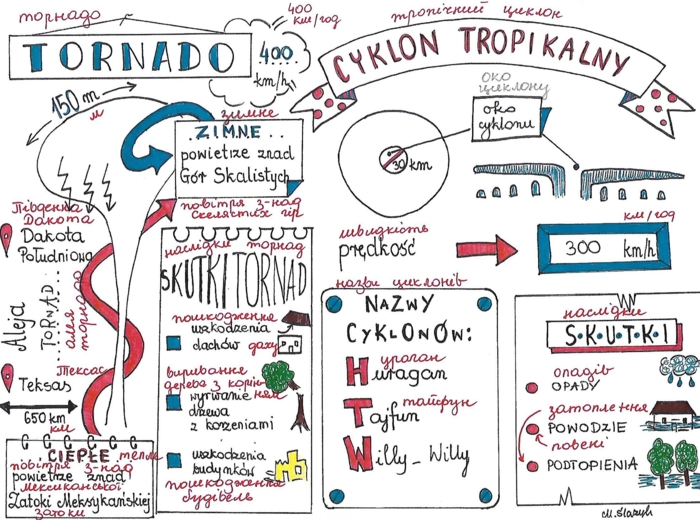 торнадо
TORNADO
400 км/год
400 km/h
150 m
м
зимне
ZIMNE
powietrze znad
Gór Skalistych
повітря з-над
скелястих гір
Південна
Дакота
Dakota
Południowa
Aleja
TORNAD
алея
торнадо
Техас
Teksas
650 km
км
CIEPŁE
тепле
повітря з-над
powietrze znad
мексиканської
Zatoki Meksykańskiej
затоки
наслідки торнад
SKUTKI TORNAD
пошкодження
uszkodzenia
dachów
даху
виривання
дерева з корінням
wyrwanie
drzewa
z korzeniami
uszkodzenia
budynków
пошкодження
будівель
тропічний циклон
CYKLON TROPIKALNY
око
циклону
oko
cyklonu
30 km
швидкість
prędkość
км/год
300 km/h
назви циклонів
NAZWY
CYKLONÓW:
ураган
Huragan
тайфун
Tajfun
Willy-Willy
наслідки
SKUTKI
опадів
OPADY
затоплення
POWODZIE
повені
PODTOPIENIA